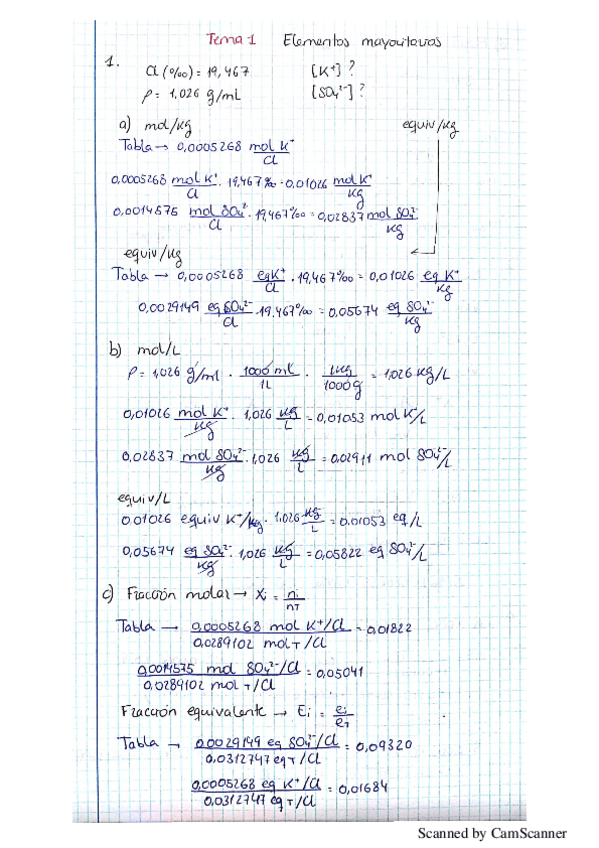 Tema 1 Elementos mayoritarios
1.
Cl (‰) = 19,467 [K⁺] ?
ρ = 1.026 g/mL [SO₄²⁻] ?
a) mol/kg equiv/kg
Tabla → 0,0005268 mol K⁺/Cl
0,0005268 mol K⁺/Cl · 19,467‰ = 0,01026 mol K⁺/kg
0,0014575 mol SO₄²⁻/Cl · 19,467‰ = 0,02837 mol SO₄²⁻/kg
equiv/kg
Tabla → 0,0005268 eq K⁺/Cl · 19,467‰ = 0,01026 eq K⁺/kg
0,0029149 eq SO₄²⁻/Cl · 19.467‰ = 0,05674 eq SO₄²⁻/kg
b) mol/L
ρ = 1,026 g/ml · 1000 ml/1L · 1kg/1000g = 1,026 kg/L
0,01026 mol K⁺/kg · 1,026 kg/L = 0,01053 mol K⁺/L
0,02837 mol SO₄²⁻/kg · 1,026 kg/L = 0,02911 mol SO₄²⁻/L
equiv/L
0.01026 equiv K⁺/kg · 1,026 kg/L = 0.01053 eq/L
0,05674 eq SO₄²⁻/kg · 1,026 kg/L = 0,05822 eq SO₄²⁻/L
c) Fracción molar → Xi = ni/nT
Tabla → 0,0005268 mol K⁺/Cl / 0,0289102 mol T/Cl = 0,01822
0,0014575 mol SO₄²⁻/Cl / 0,0289102 mol T/Cl = 0,05041
Fracción equivalente → Ei = ei/eT
Tabla → 0.0029149 eq SO₄²⁻/Cl / 0,0312747 eq T/Cl = 0,09320
0,0005268 eq K⁺/Cl / 0,0312747 eq T/Cl = 0,01684
Scanned by CamScanner